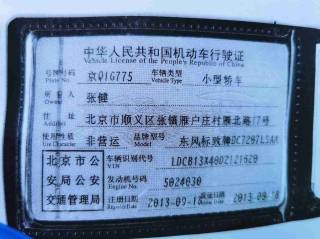 中华人民共和国机动车行驶证
Vehicle License of the People's Republic of China
号牌号码 京Q1G775 车辆类型 小型轿车
Plate No. Vehicle Type
所有人 张健
Owner
住址 北京市顺义区张镇雁户庄村雁北路17号
Address
使用性质 非营运 品牌型号 东风标致牌DC7207LSAA
Use Character Model
北京市公 车辆识别代号 LDCB13X4002121620
VIN
安局公安 发动机号码 5024030
Engine No.
交通管理局 注册日期 2013-09-18 发证日期 2013-09-18
Register Date Issue Date